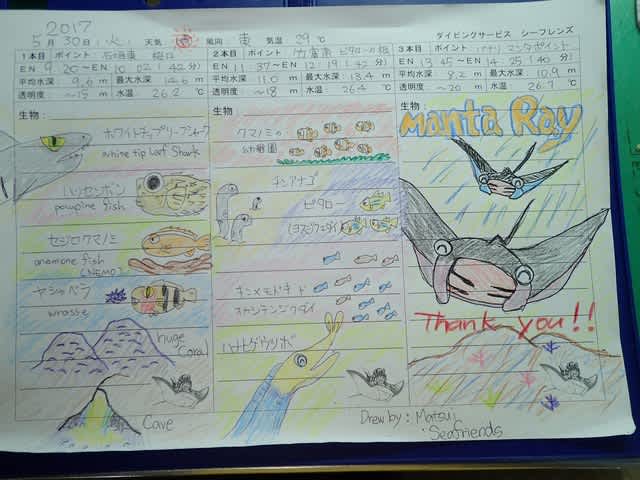 2017
5月30日（火） 天気 風向：東 気温 29℃ ダイビングサービス シーフレンズ
1本目 ポイント：石垣東
EN 9:20～EN 10:02（42分）
平均水深 9.6m 最大水深 14.6m
透明度 ～15m 水温 26.2℃
生物：
ホワイトチップリーフシャーク
white tip Leaf Shark
ハリセンボン
pawpine fish
セジロクマノミ
anamone fish
(NEMO)
ヤシャベラ
wrasse
huge
Coral
Cave
2本目 ポイント：竹富南 ビタロー
EN 11:37～EN 12:19（42分）
平均水深 11.0m 最大水深 13.4m
透明度 ～18m 水温 26.4℃
生物：
クマノミの
幼稚園
チンアナゴ
ビタロー
(ヨスジフエダイ)
キンメモドキ
スカシテンジクダイ
ハナヒゲウツボ
3本目 ポイント マンタポイント
EN 13:45～EN 14:25（40分）
平均水深 8.2m 最大水深 10.9m
透明度 ～20m 水温 26.7℃
生物：
Manta Ray
Thank you!!
Drew by: Matsui
Seafriends